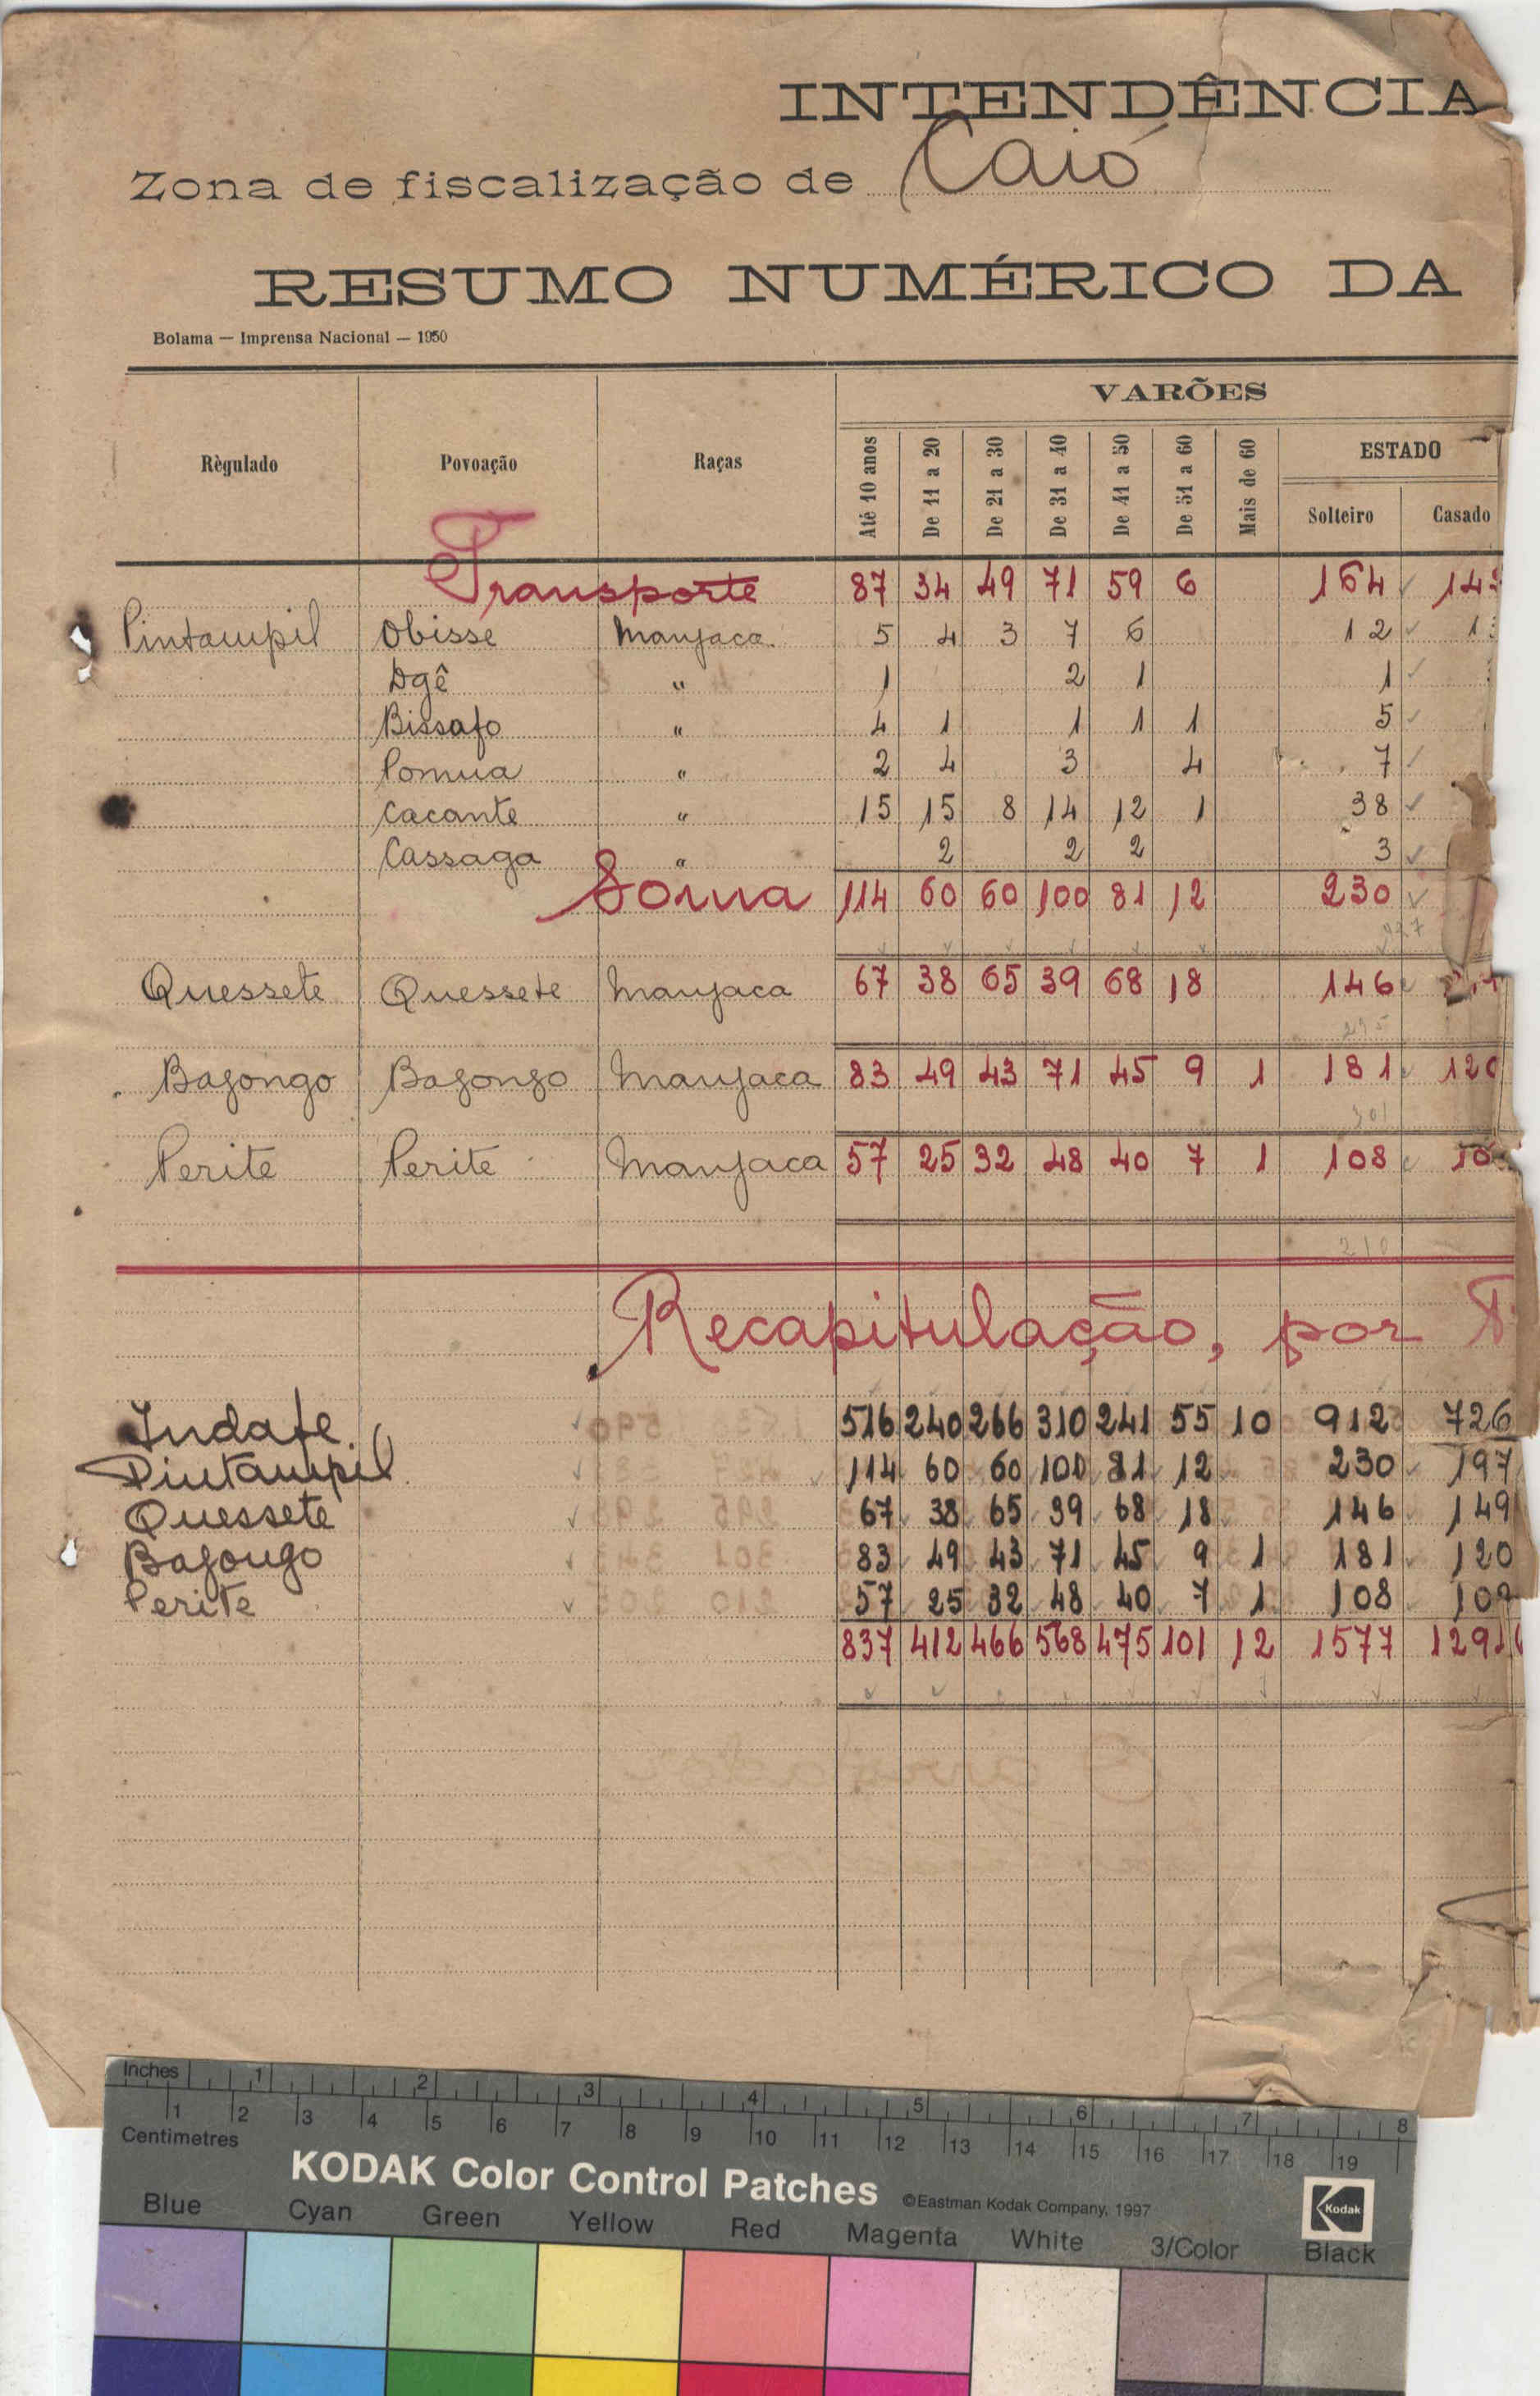 INTENDÊNCIA
Zona de fiscalização de Caió
RESUMO NUMÉRICO DA
Bolama — Imprensa Nacional — 1950
VARÕES
Règulado Povoação Raças Até 10 anos De 11 a 20 De 21 a 30 De 31 a 40 De 41 a 50 De 51 a 60 Mais de 60 ESTADO
Solteiro Casado
Transporte 87 34 49 71 59 6 164
Pintampil Obisse Manjaca 5 4 3 7 6 12
Dgê " 1 2 1 1
Bissafo " 4 1 1 1 1 5
Pomua " 2 4 3 4 7
Cacante " 15 15 8 14 12 1 38
Cassaga " 2 2 2 3
Soma 114 60 60 100 81 12 230
Quessete Quessete Manjaca 67 38 65 39 68 18 146
295
Bajongo Bajongo Manjaca 83 49 43 71 45 9 1 181 120
301
Perite Perite Manjaca 57 25 32 48 40 7 1 108
210
Recapitulação, por
Indafe 516 240 266 310 241 55 10 912 726
Pintampil 114 60 60 100 81 12 230 197
Quessete 67 38 65 39 68 18 146 149
Bajongo 83 49 43 71 45 9 1 181 120
Perite 57 25 32 48 40 7 1 108 102
837 412 466 568 475 101 12 1577
Inches 1 2 3 4 5 6 7 8
1 2 3 4 5 6 7 8 9 10 11 12 13 14 15 16 17 18 19
Centimetres
KODAK Color Control Patches ©Eastman Kodak Company, 1997 Kodak
Blue Cyan Green Yellow Red Magenta White 3/Color Black